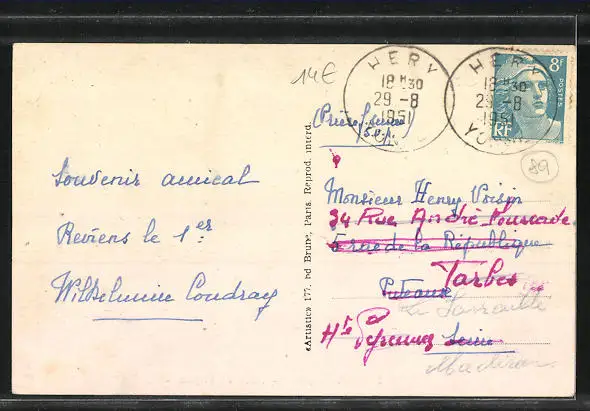 14€
HERY
18 H 30
29 - 8
1951
HERY
18 H 30
29 - 8
1951
8F
POSTES
RF
89
Souvenir amical
Reviens le 1er
Wilhelmine Coudray
«Artistic» 177, bd Brune, Paris. Reprod. interd.
Monsieur Henry Voisin
34 Rue André Fourcade
5 rue de la République
Tarbes
Puteaux
Htes Pyrénées Seine